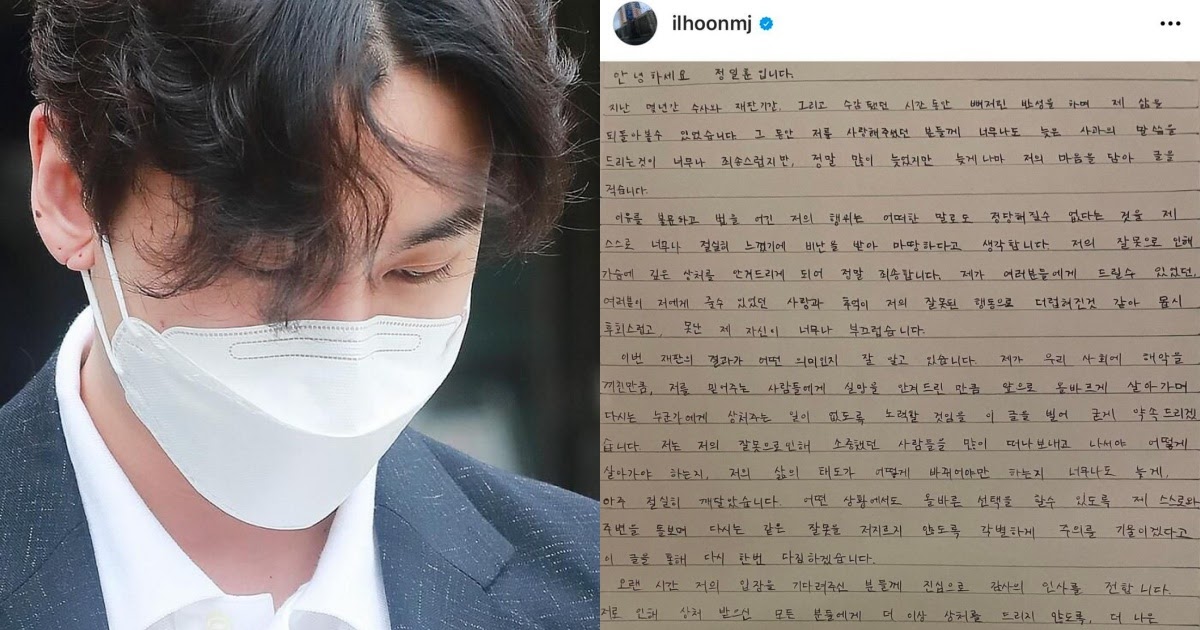 ilhoonmj
안녕하세요 정일훈입니다.
지난 몇년간 수사와 재판기간, 그리고 수감됐던 시간동안 뼈저린 반성을 하며 제 삶을
되돌아볼수 있었습니다. 그 동안 저를 사랑해주셨던 분들께 너무나도 늦은 사과의 말씀을
드리는것이 너무나 죄송스럽지만, 정말 많이 늦었지만 늦게나마 저의 마음을 담아 글을
적습니다.
이유를 불문하고 법을 어긴 저의 행위는 어떠한 말로도 정당해질수 없다는 것을 제
스스로 너무나 절실히 느꼈기에 비난을 받아 마땅하다고 생각합니다. 저의 잘못으로 인해
가슴에 깊은 상처를 안겨드리게 되어 정말 죄송합니다. 제가 여러분들에게 드릴수 있었던,
여러분이 저에게 줄수 있었던 사랑과 추억이 저의 잘못된 행동으로 더럽혀진것 같아 몹시
후회스럽고, 못난 제 자신이 너무나 부끄럽습니다.
이번 재판의 결과가 어떤 의미인지 잘 알고 있습니다. 제가 우리 사회에 해악을
끼친만큼, 저를 믿어주는 사람들에게 실망을 안겨드린 만큼 앞으로 올바르게 살아가며
다시는 누군가에게 상처주는 일이 없도록 노력할 것임을 이 글을 빌어 굳게 약속드리겠
습니다. 저는 저의 잘못으로인해 소중했던 사람들을 많이 떠나보내고 나서야 어떻게
살아가야 하는지, 저의 삶의 태도가 어떻게 바뀌어야만 하는지 너무나도 늦게,
아주 절실히 깨달았습니다. 어떤 상황에서도 올바른 선택을 할수 있도록 제 스스로와
주변을 돌보며 다시는 같은 잘못을 저지르지 않도록 각별하게 주의를 기울이겠다고
이 글을 통해 다시 한번 다짐하겠습니다.
오랜 시간 저의 입장을 기다려주신 분들께 진심으로 감사의 인사를 전합니다.
저로 인해 상처 받으신 모든 분들에게 더 이상 상처를 드리지 않도록, 더 나은